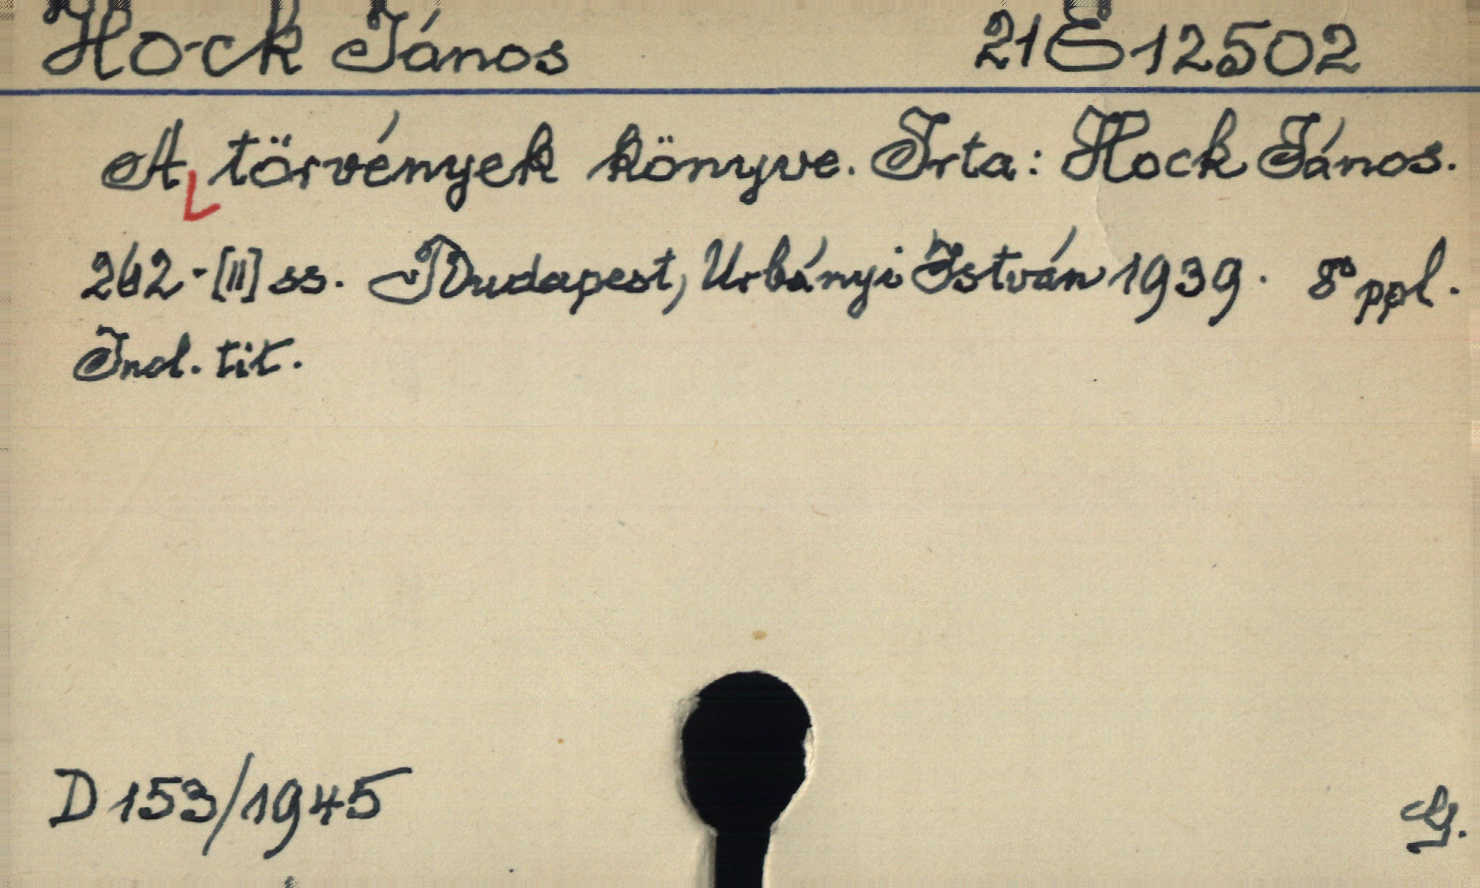 Hock János 21 E 12502
A törvények könyve. Irta: Hock János.
262-[II] ss. Budapest, Urbányi István 1939. 8° ppl.
Ind. tit.
D 153/1945
G.